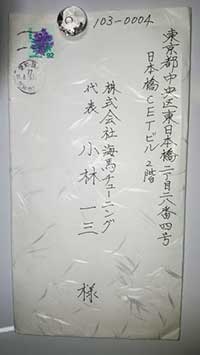 103-0004
東京都中央区東日本橋二丁目二八番四号
日本橋CETビル2階
株式会社海馬チューニング
代表 小林一三 様